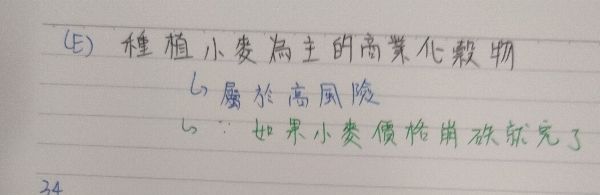 (E) 種植小麥為主的商業化穀物
↳ 屬於高風險
↳ ∵ 如果小麥價格崩跌就完了
34